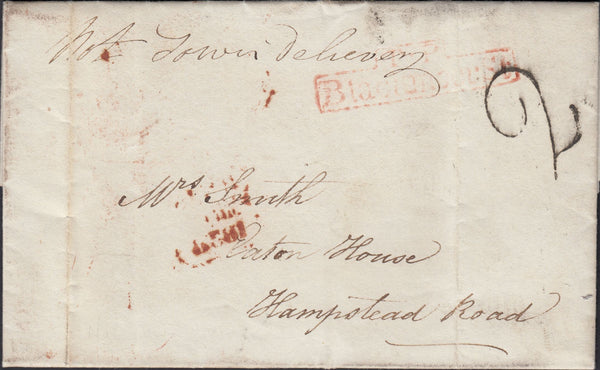 Not Town Delievery
2
Mrs. Smith
Eaton House
Hampstead Road